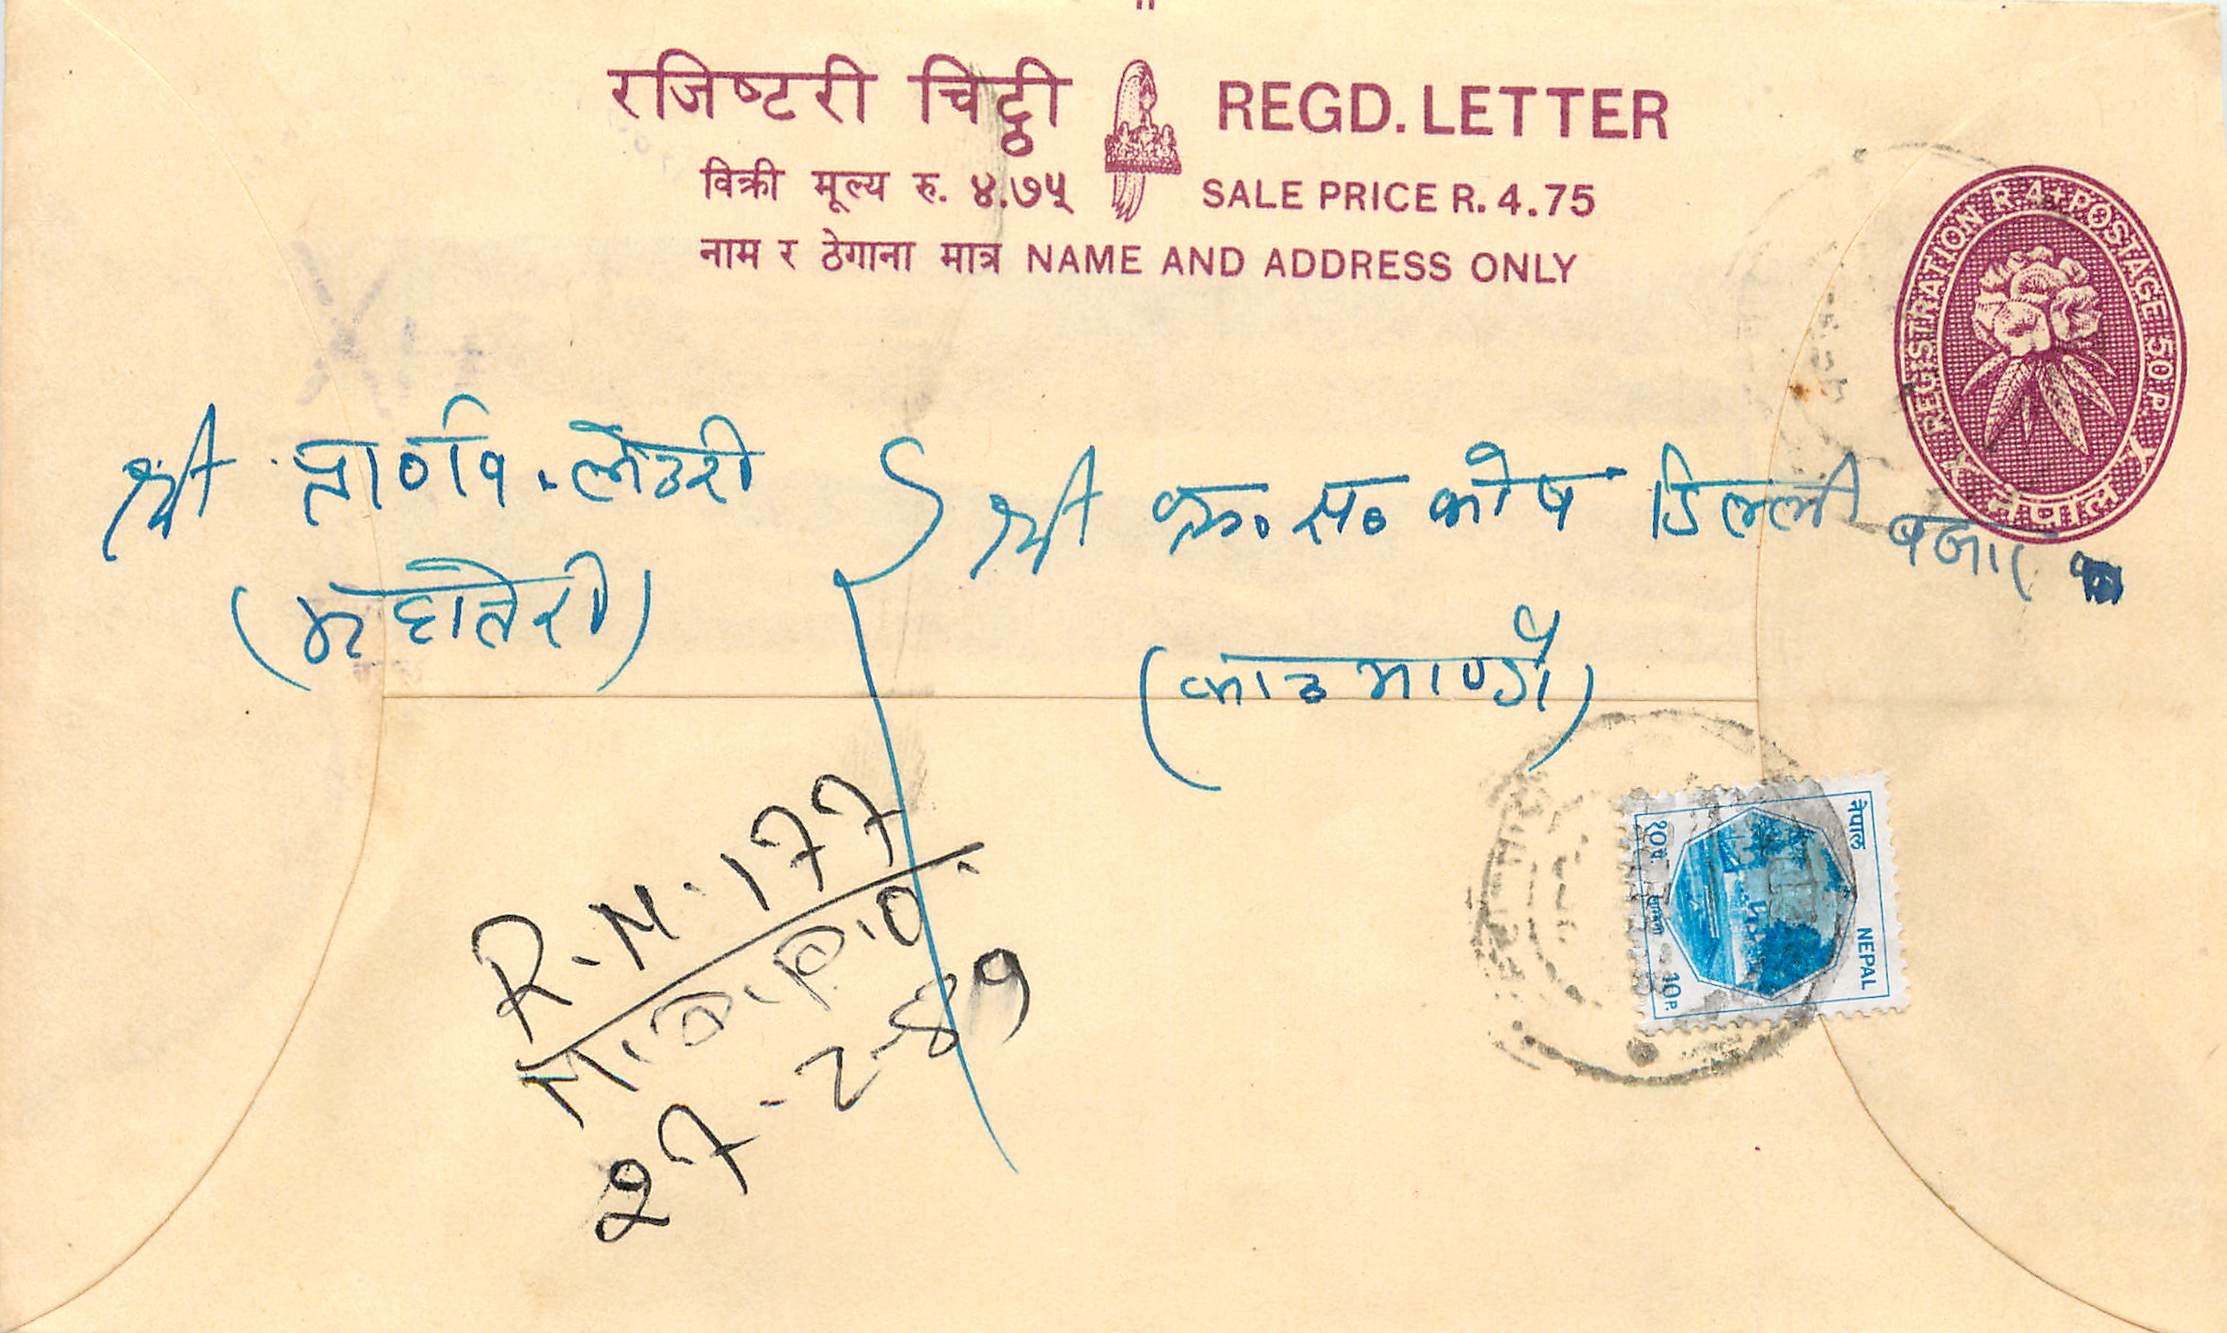 रजिष्टरी चिट्ठी REGD. LETTER
विक्री मूल्य रु. ४.७५ SALE PRICE R. 4.75
नाम र ठेगाना मात्र NAME AND ADDRESS ONLY
REGISTRATION R 4 + POSTAGE 50 P.
नेपाल
श्री
श्री क. स. कोष डिल्ली बजार
(महोतरी)
(काठमाण्डौ)
R.N. 177
M.D.P.O.
27-2-89
नेपाल NEPAL
१० पै. 10 P.